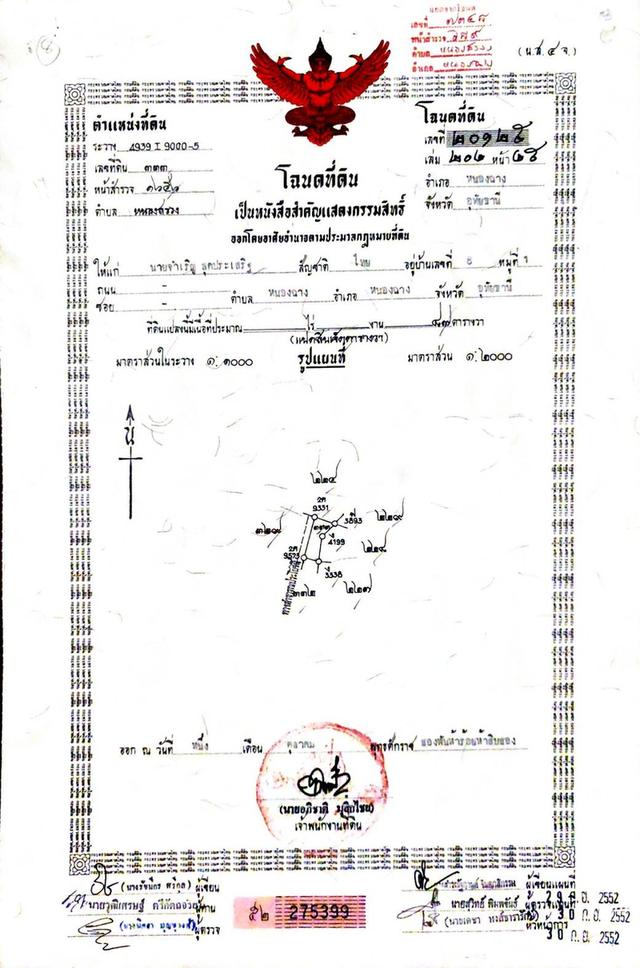 (น.ส.๔ จ.)
ตำแหน่งที่ดิน
ระวาง 4939 I 9000-5
เลขที่ดิน ๓๓๓
หน้าสำรวจ
ตำบล หนองสรวง
โฉนดที่ดิน
เลขที่ ๒๐๑๒๕
เล่ม ๒๐๒ หน้า ๒๕
อำเภอ หนองฉาง
จังหวัด อุทัยธานี
โฉนดที่ดิน
เป็นหนังสือสำคัญแสดงกรรมสิทธิ์
ออกโดยอาศัยอำนาจตามประมวลกฎหมายที่ดิน
ให้แก่ นายจำเริญ สุดประเสริฐ สัญชาติ ไทย อยู่บ้านเลขที่ 8 หมู่ที่ 1
ถนน -
ซอย - ตำบล หนองฉาง อำเภอ หนองฉาง จังหวัด อุทัยธานี
ที่ดินแปลงนี้มีเนื้อที่ประมาณ ไร่ งาน ๘๗ ตารางวา
(แปดสิบเจ็ดตารางวา)
มาตราส่วนในระวาง ๑:๑๐๐๐ รูปแผนที่ มาตราส่วน ๑:๒๐๐๐
น
๒๒๔
2ค
9331
3893
๒๒๑๙
4199
๒๒๑๘
2ค
9573
3338
๓๓๒
๒๒๑๗
ทางสาธารณประโยชน์
ออก ณ วันที่ หนึ่ง เดือน ตุลาคม พุทธศักราช สองพันห้าร้อยห้าสิบสอง
เจ้าพนักงานที่ดิน
ผู้เขียน
ผู้ทาน
ผู้ตรวจ
๕๒ 275399
ผู้เขียนแผนที่
นายสุวิทย์ พิมพจันธ์ ผู้ตรวจแผนที่ ก.ย. 2552
30 ก.ย. 2552
หัวหน้าการ
30 ก.ย. 2552